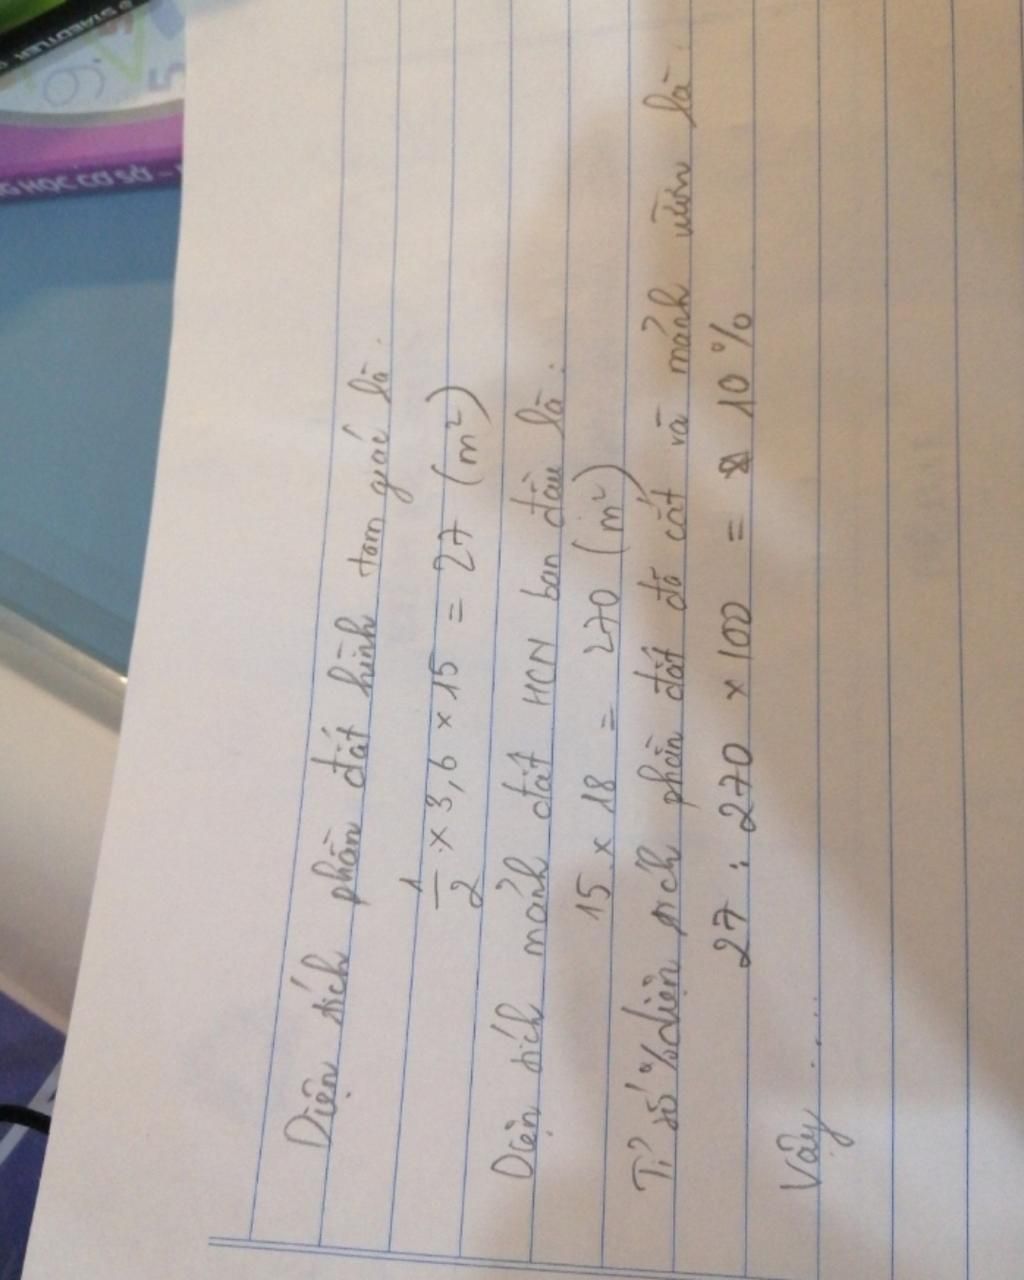 STAEDTLER
G HỌC CƠ SỞ –
Diện tích phần đất hình tam giác là:
1/2 × 3,6 × 15 = 27 (m²)
Diện tích mảnh đất HCN ban đầu là:
15 × 18 = 270 (m²)
Tỉ số % diện tích phần đất đã cắt và mảnh vườn là:
27 : 270 × 100 = 10 %
Vậy ....